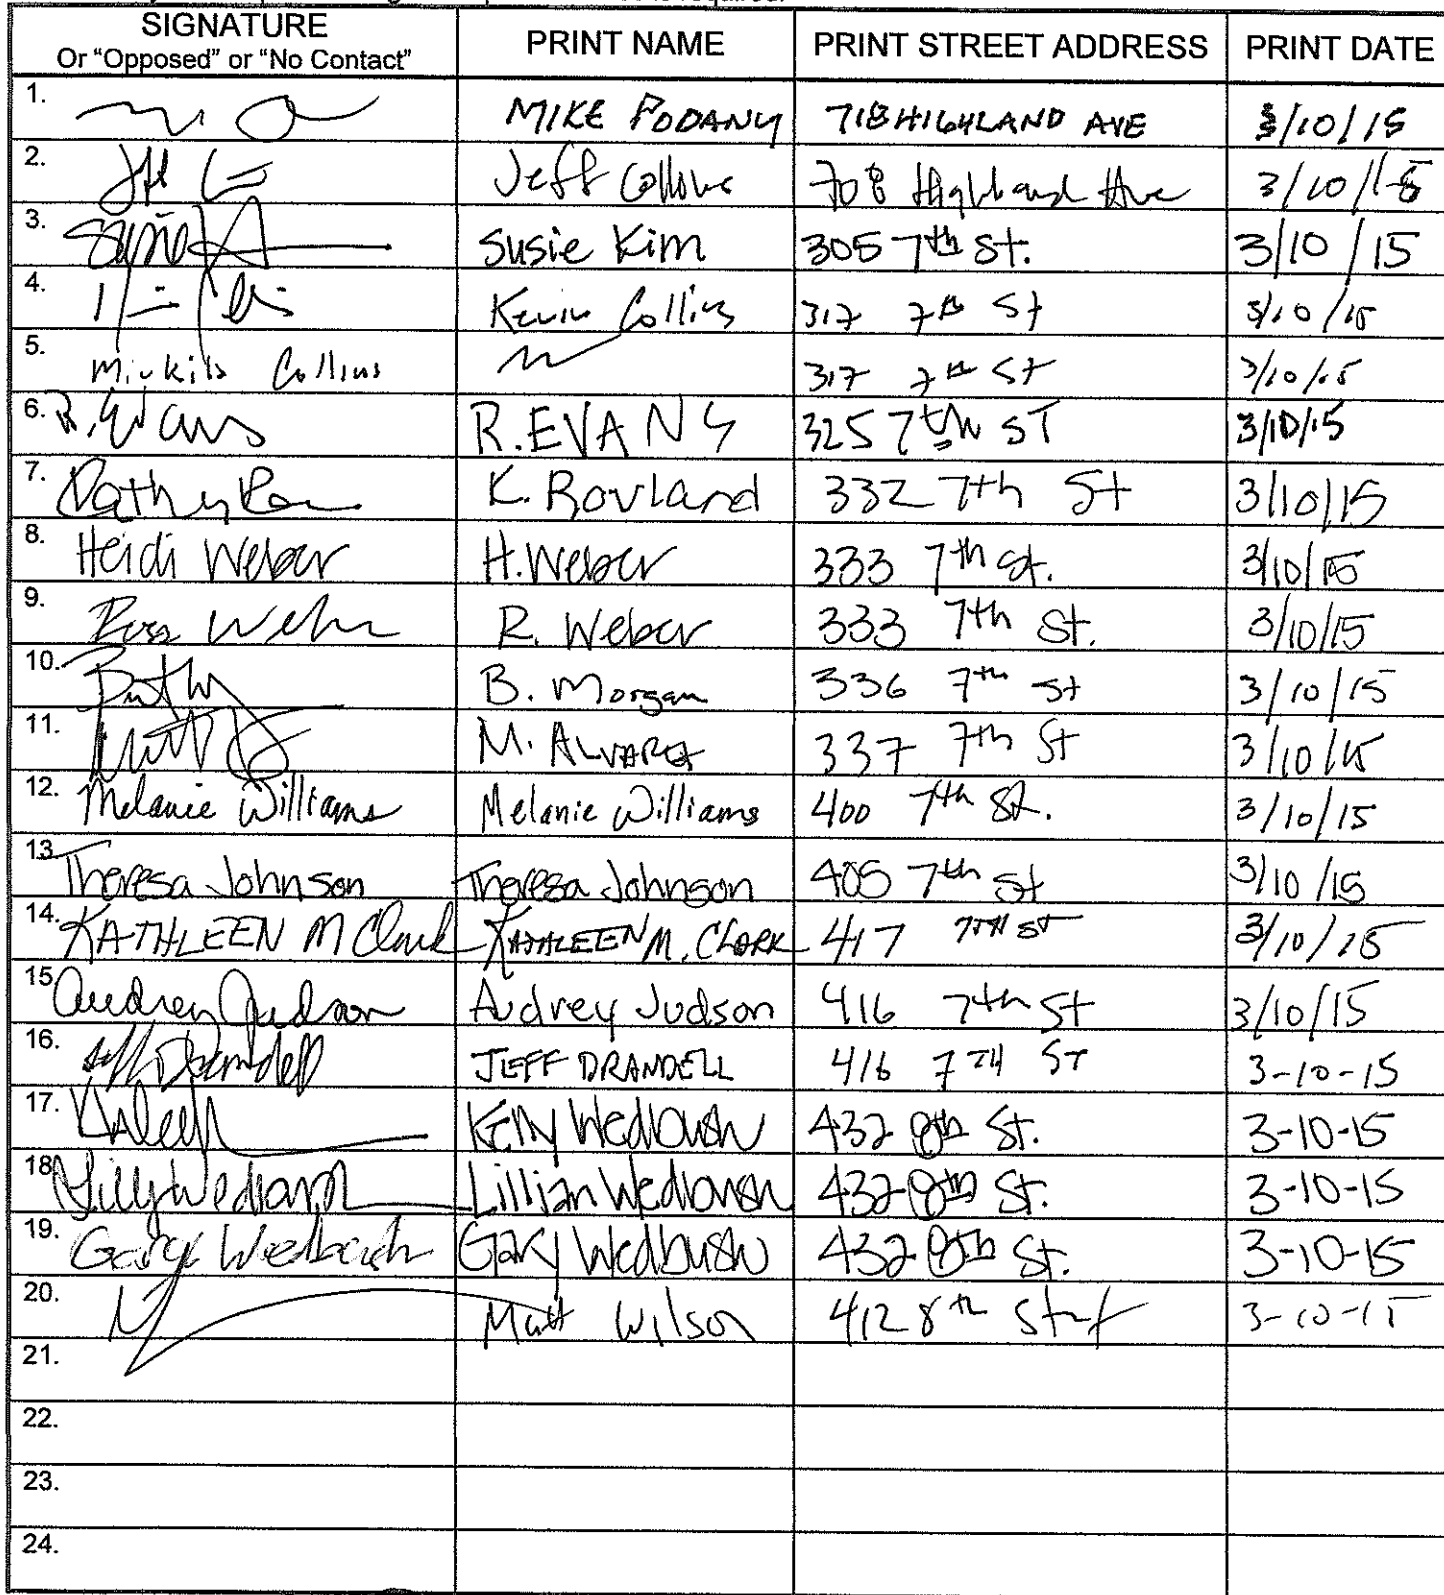 SIGNATURE PRINT NAME PRINT STREET ADDRESS PRINT DATE
Or "Opposed" or "No Contact"
1. MIKE PODANY 718 HIGHLAND AVE 3/10/15
2. Jeff 708 Highland Ave 3/10/15
3. Susie Kim 305 7th St. 3/10/15
4. Kevin Collins 317 7th St 3/10/15
5. Collins 317 7th St 3/10/15
6. R. Evans R. EVANS 325 7th ST 3/10/15
7. K. Rovland 332 7th St 3/10/15
8. Heidi Weber H. Weber 333 7th St. 3/10/15
9. R. Weber 333 7th St. 3/10/15
10. B. Morgan 336 7th St 3/10/15
11. M. 337 7th St 3/10/15
12. Melanie Williams Melanie Williams 400 7th St. 3/10/15
13. Theresa Johnson Theresa Johnson 405 7th St 3/10/15
14. KATHLEEN M Clark KATHLEEN M. CLARK 417 7TH ST 3/10/15
15. Audrey Judson Audrey Judson 416 7th St 3/10/15
16. Jeff Drandell JEFF DRANDELL 416 7TH ST 3-10-15
17. Kelly Wedbush 432 8th St. 3-10-15
18. Lilly Wedbush Lillian Wedbush 432 8th St. 3-10-15
19. Gary Wedbush Gary Wedbush 432 8th St. 3-10-15
20. Matt Wilson 412 8th Street 3-10-15
21.
22.
23.
24.